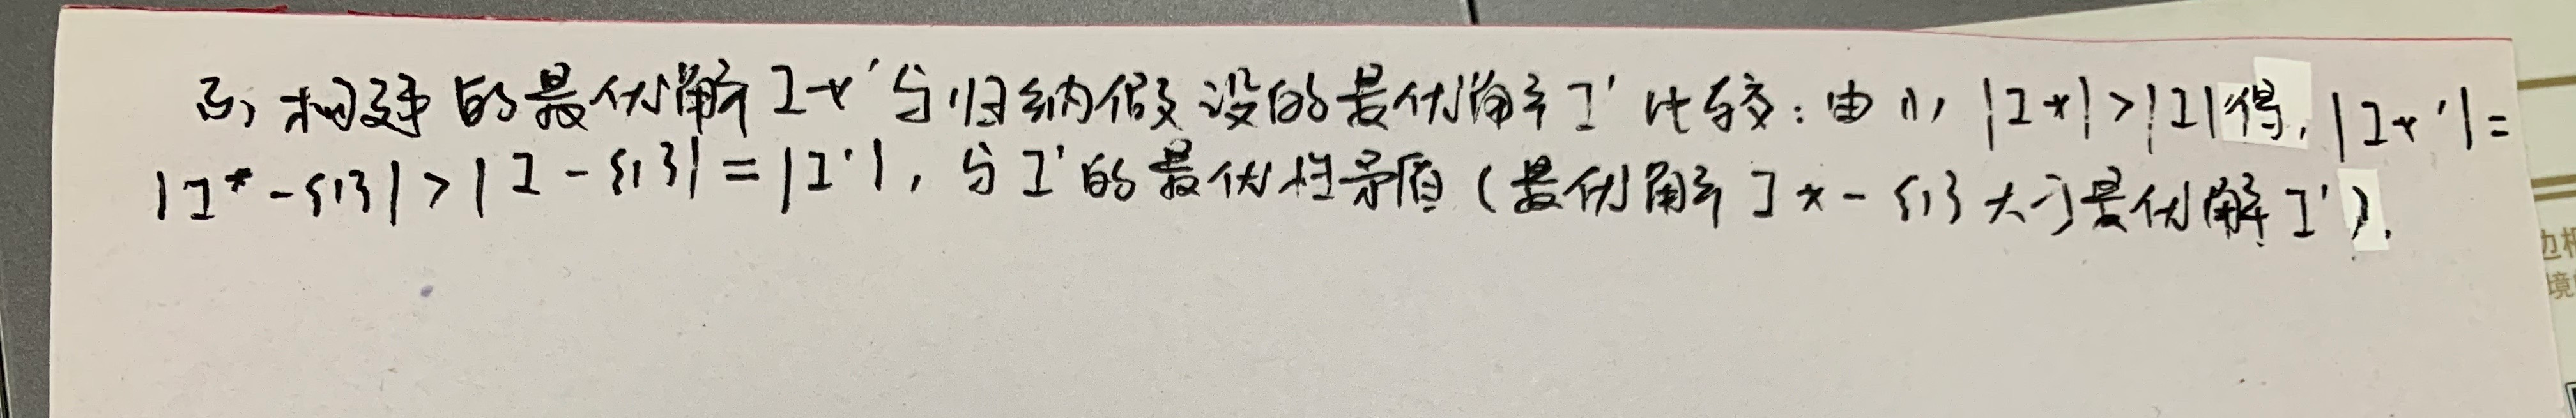 3) 构建的最优解I*'与归纳假设的最优解I'比较:由1), |I*|>|I|得, |I*'|=
|I*-{1}|>|I-{1}|=|I'|, 与I'的最优性矛盾(最优解I*-{1}大于最优解I').
边框
境